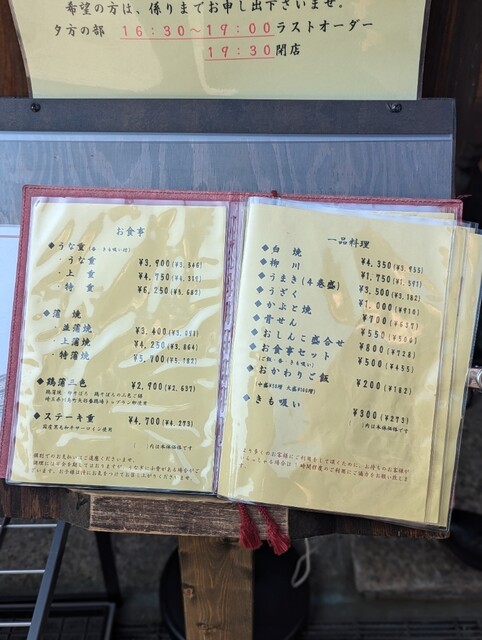 希望の方は、係りまでお申し出下さいませ。
夕方の部 16:30~19:00ラストオーダー
19:30閉店
お食事
◆うな重(香・きも吸い付)
・うな重 ¥3,900
・上重 ¥4,750
・特重 ¥6,250
◆蒲焼
・並蒲焼 ¥3,400
・上蒲焼 ¥4,250(¥3,864)
・特蒲焼 ¥5,700
◆鶏蒲三色 ¥2,900(¥2,637)
◆ステーキ重 ¥4,700(¥4,273)
国産黒毛和牛サーロイン使用
( )内は本体価格です
一品料理
◆白焼 ¥4,350(¥3,955)
◆柳川 ¥1,750(¥1,591)
◆うまき(4巻盛) ¥3,500(¥3,182)
◆うざく ¥1,000(¥910)
◆かぶと焼 ¥700(¥637)
◆骨せん ¥550(¥500)
◆おしんこ盛合せ ¥800(¥728)
◆お食事セット ¥500(¥455)
(ご飯・香・きも吸い)
◆おかわりご飯 ¥200(¥182)
◆きも吸い ¥300(¥273)
( )内は本体価格です